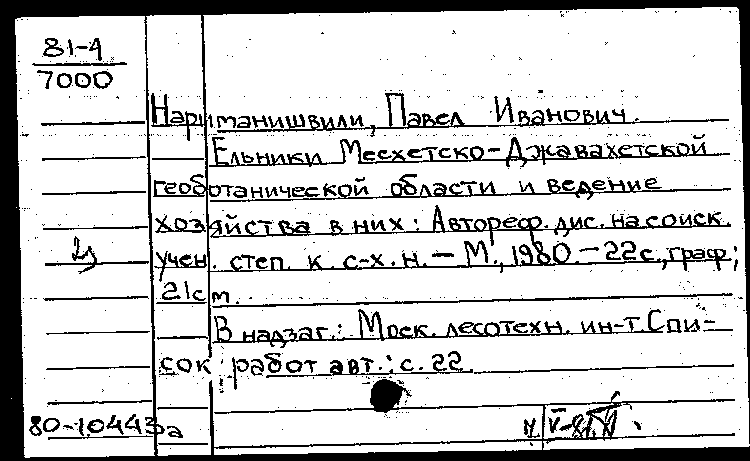 81-4
7000
Нариманишвили, Павел Иванович.
Ельники Месхетско-Джавахетской
геоботанической области и ведение
хозяйства в них: Автореф. дис. на соиск.
учен. степ. к. с-х. н. – М., 1980. – 22с., граф;
21см.
В надзаг.: Моск. лесотехн. ин-т. Спи-
сок работ авт.: с. 22.
80-10443а